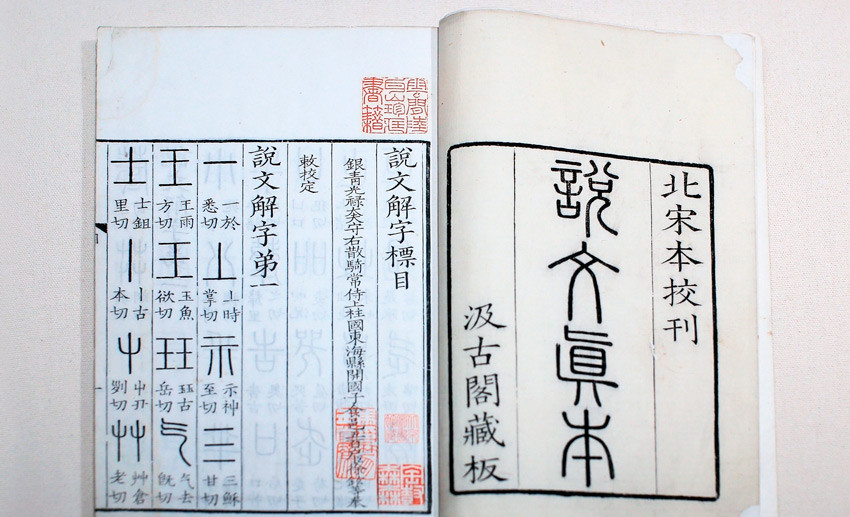 北宋本挍刊
說文眞本
汲古閣藏板
說文解字標目
銀青光祿大夫守右散騎常侍上柱國東海縣開國子食邑五百戶臣徐鉉等奉
敕挍定
說文解字弟一
一 一於悉切 丄 上時掌切 示 示神至切 三 三穌甘切
王 王雨方切 玉 玉魚欲切 玨 玨古岳切 气 气去旣切
士 士鉏里切 丨 丨古本切 屮 屮丑列切 艸 艸倉老切